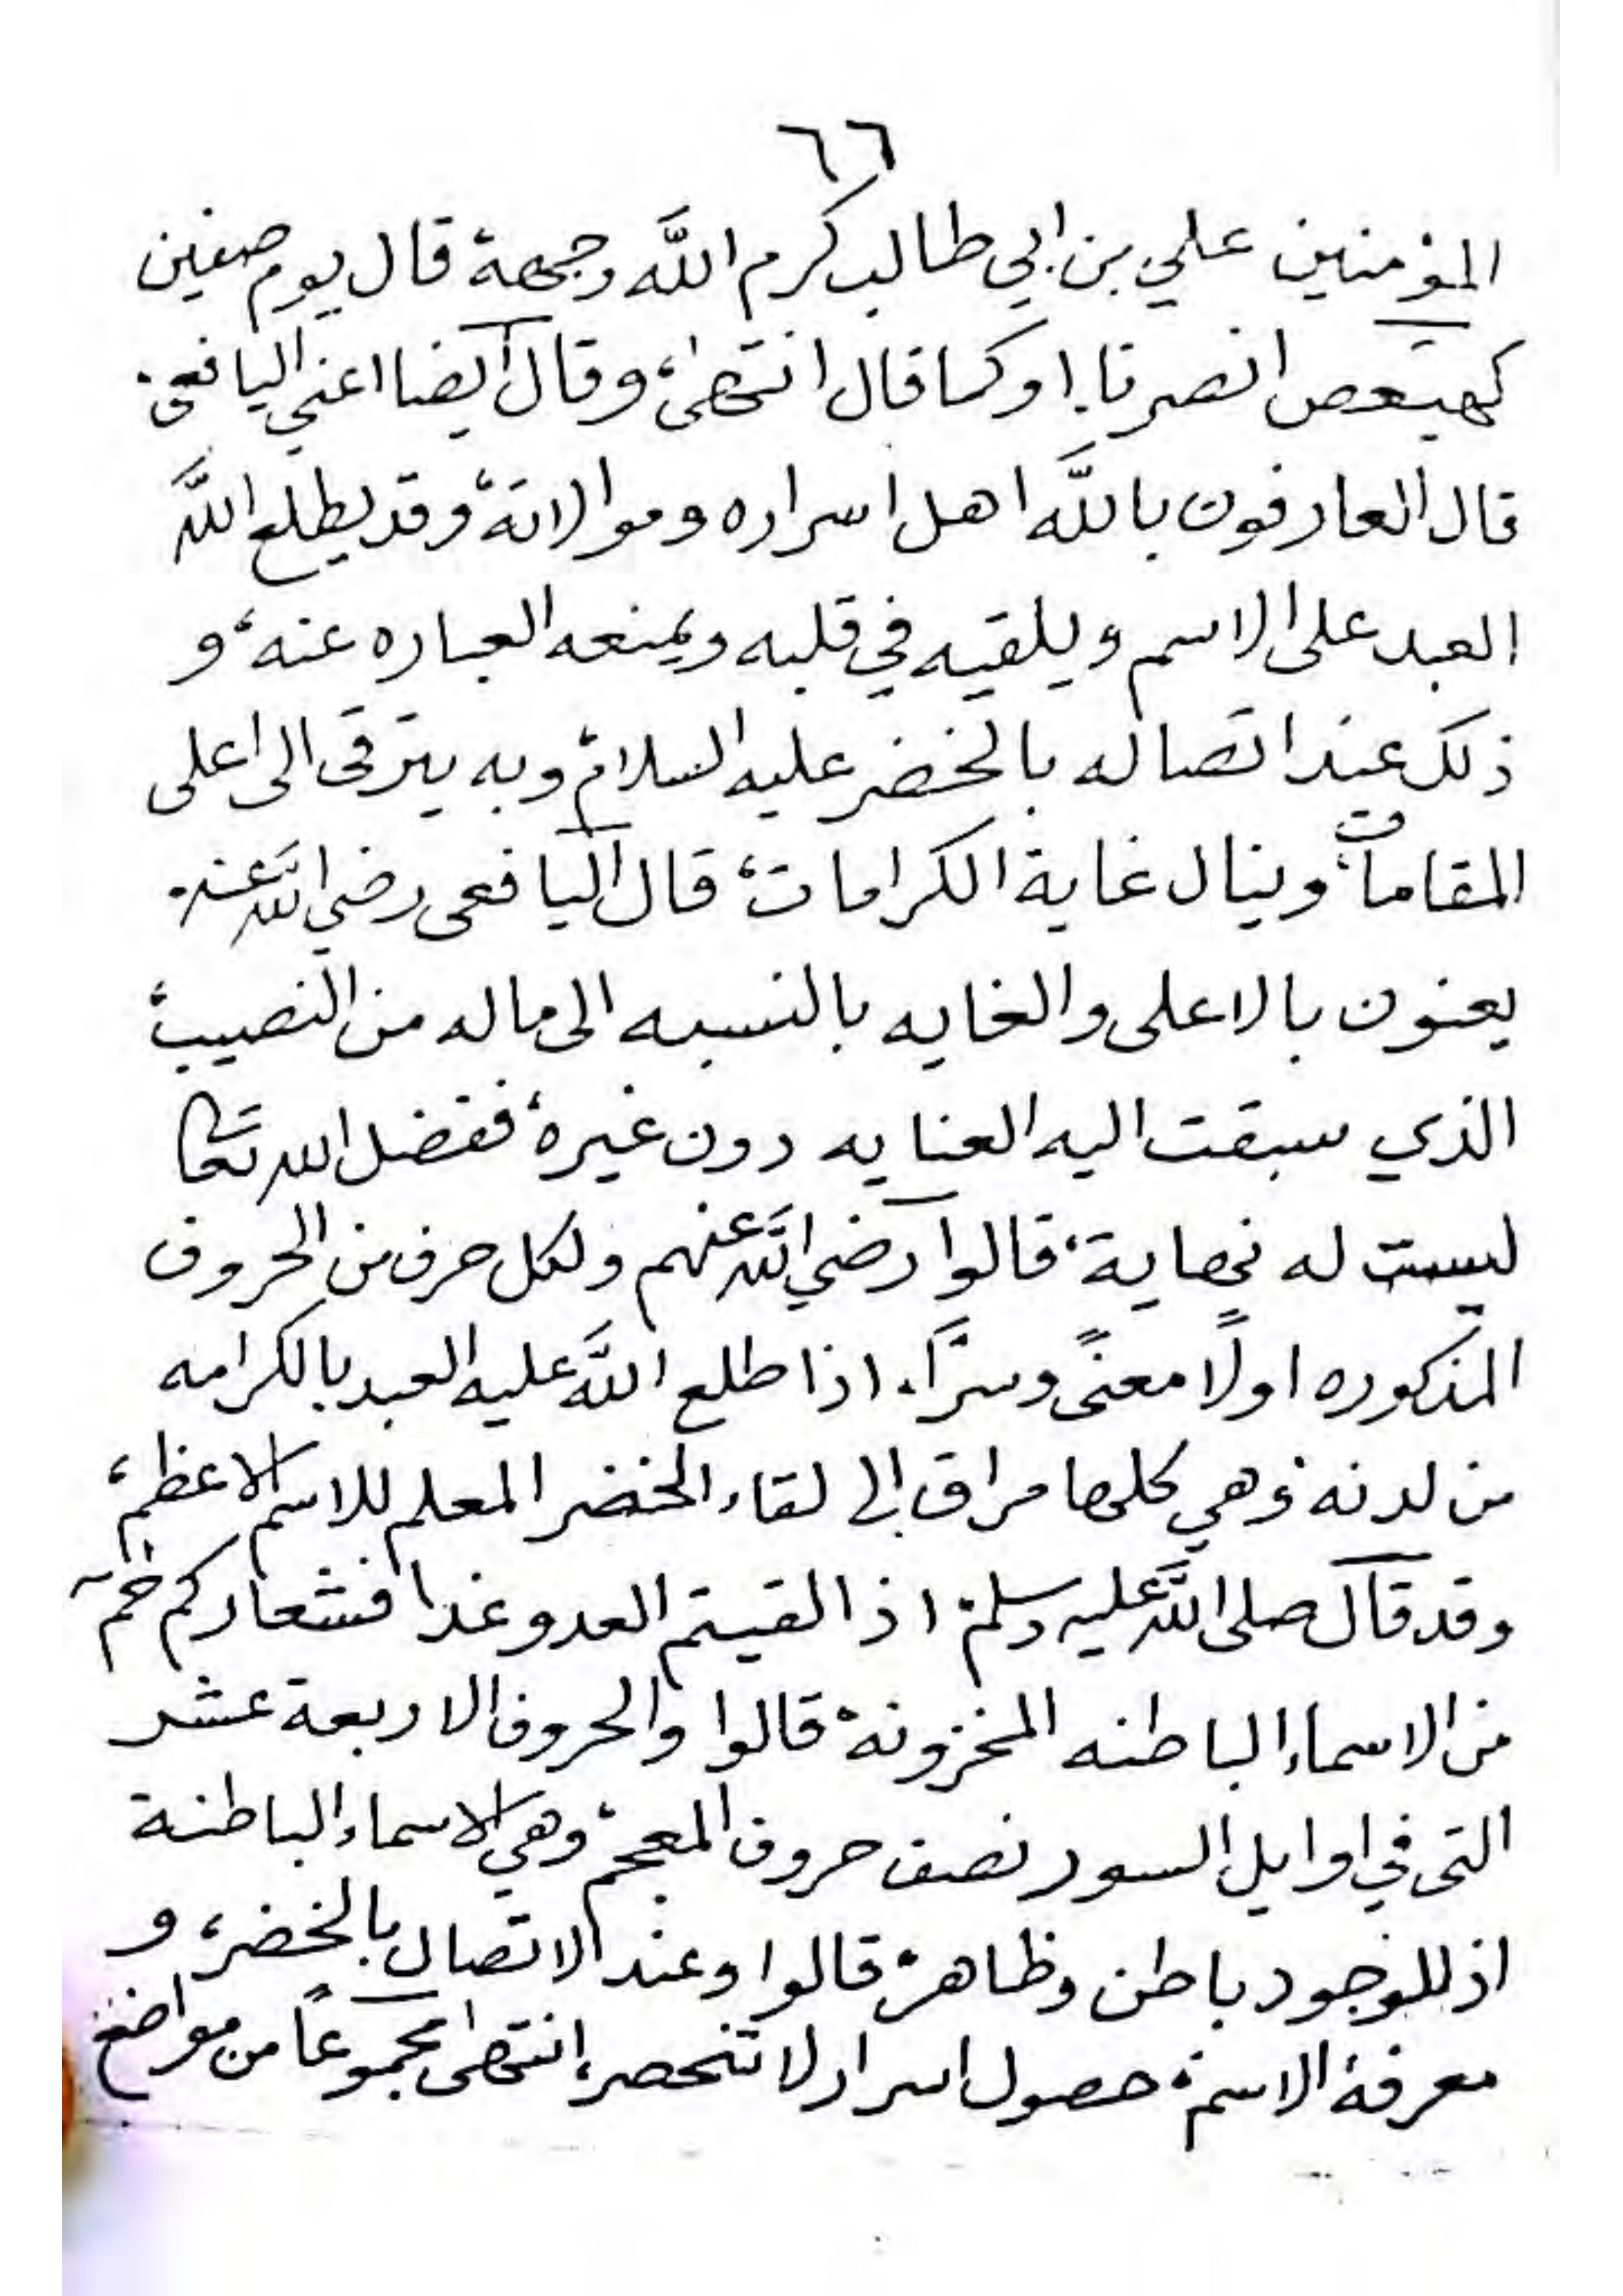 ٦٦
المؤمنين علي بن ابي طالب كرم اللَّه وجهة قال يوم صفين
كهيعص انصرنا، اوكما قال انتهىٰ، وقال ايضا اعني اليافعي.
قال العارفون باللَّه اهل اسراره وموالاتة، وقد يطلع اللَّه
العبد على الاسم ويلقيه في قلبه ويمنعه العباره عنه، و
ذلك عند اتصاله بالخضر عليه السلام، وبه يترقى الى اعلى
المقامات، وينال غاية الكرامات، قال اليافعى رضي اللَّه عنه.
يعنون بالاعلى والغايه بالنسبه الى ماله من النصيب،
الذي سبقت اليه العنايه دون غيره، ففضل الله تعالى
ليست له نهاية، قالوا رضي اللَّه عنهم ولكل حرف من الحروف
المذكوره اولًا معنىً وسرّاً، اذا طلع اللَّه عليه العبد بالكرامه
من لدنه، وهي كلها مراق الى لقاء الخضر المعلم للاسم الاعظم،
وقد قال صلى اللَّه عليه وسلم، اذا لقيتم العدو غدا فشعاركم حٰمٓ
من الاسماء الباطنه المخزونة، قالوا والحروف الاربعة عشر
التى في اوايل السور نصف حروف المعجم، وهي الاسماء الباطنة
اذ للوجود باطن وظاهر، قالوا وعند الاتصال بالخضر، و
معرفة الاسم، حصول اسرار لا تنحصر، انتهىٰ مجموعاً من مواضع